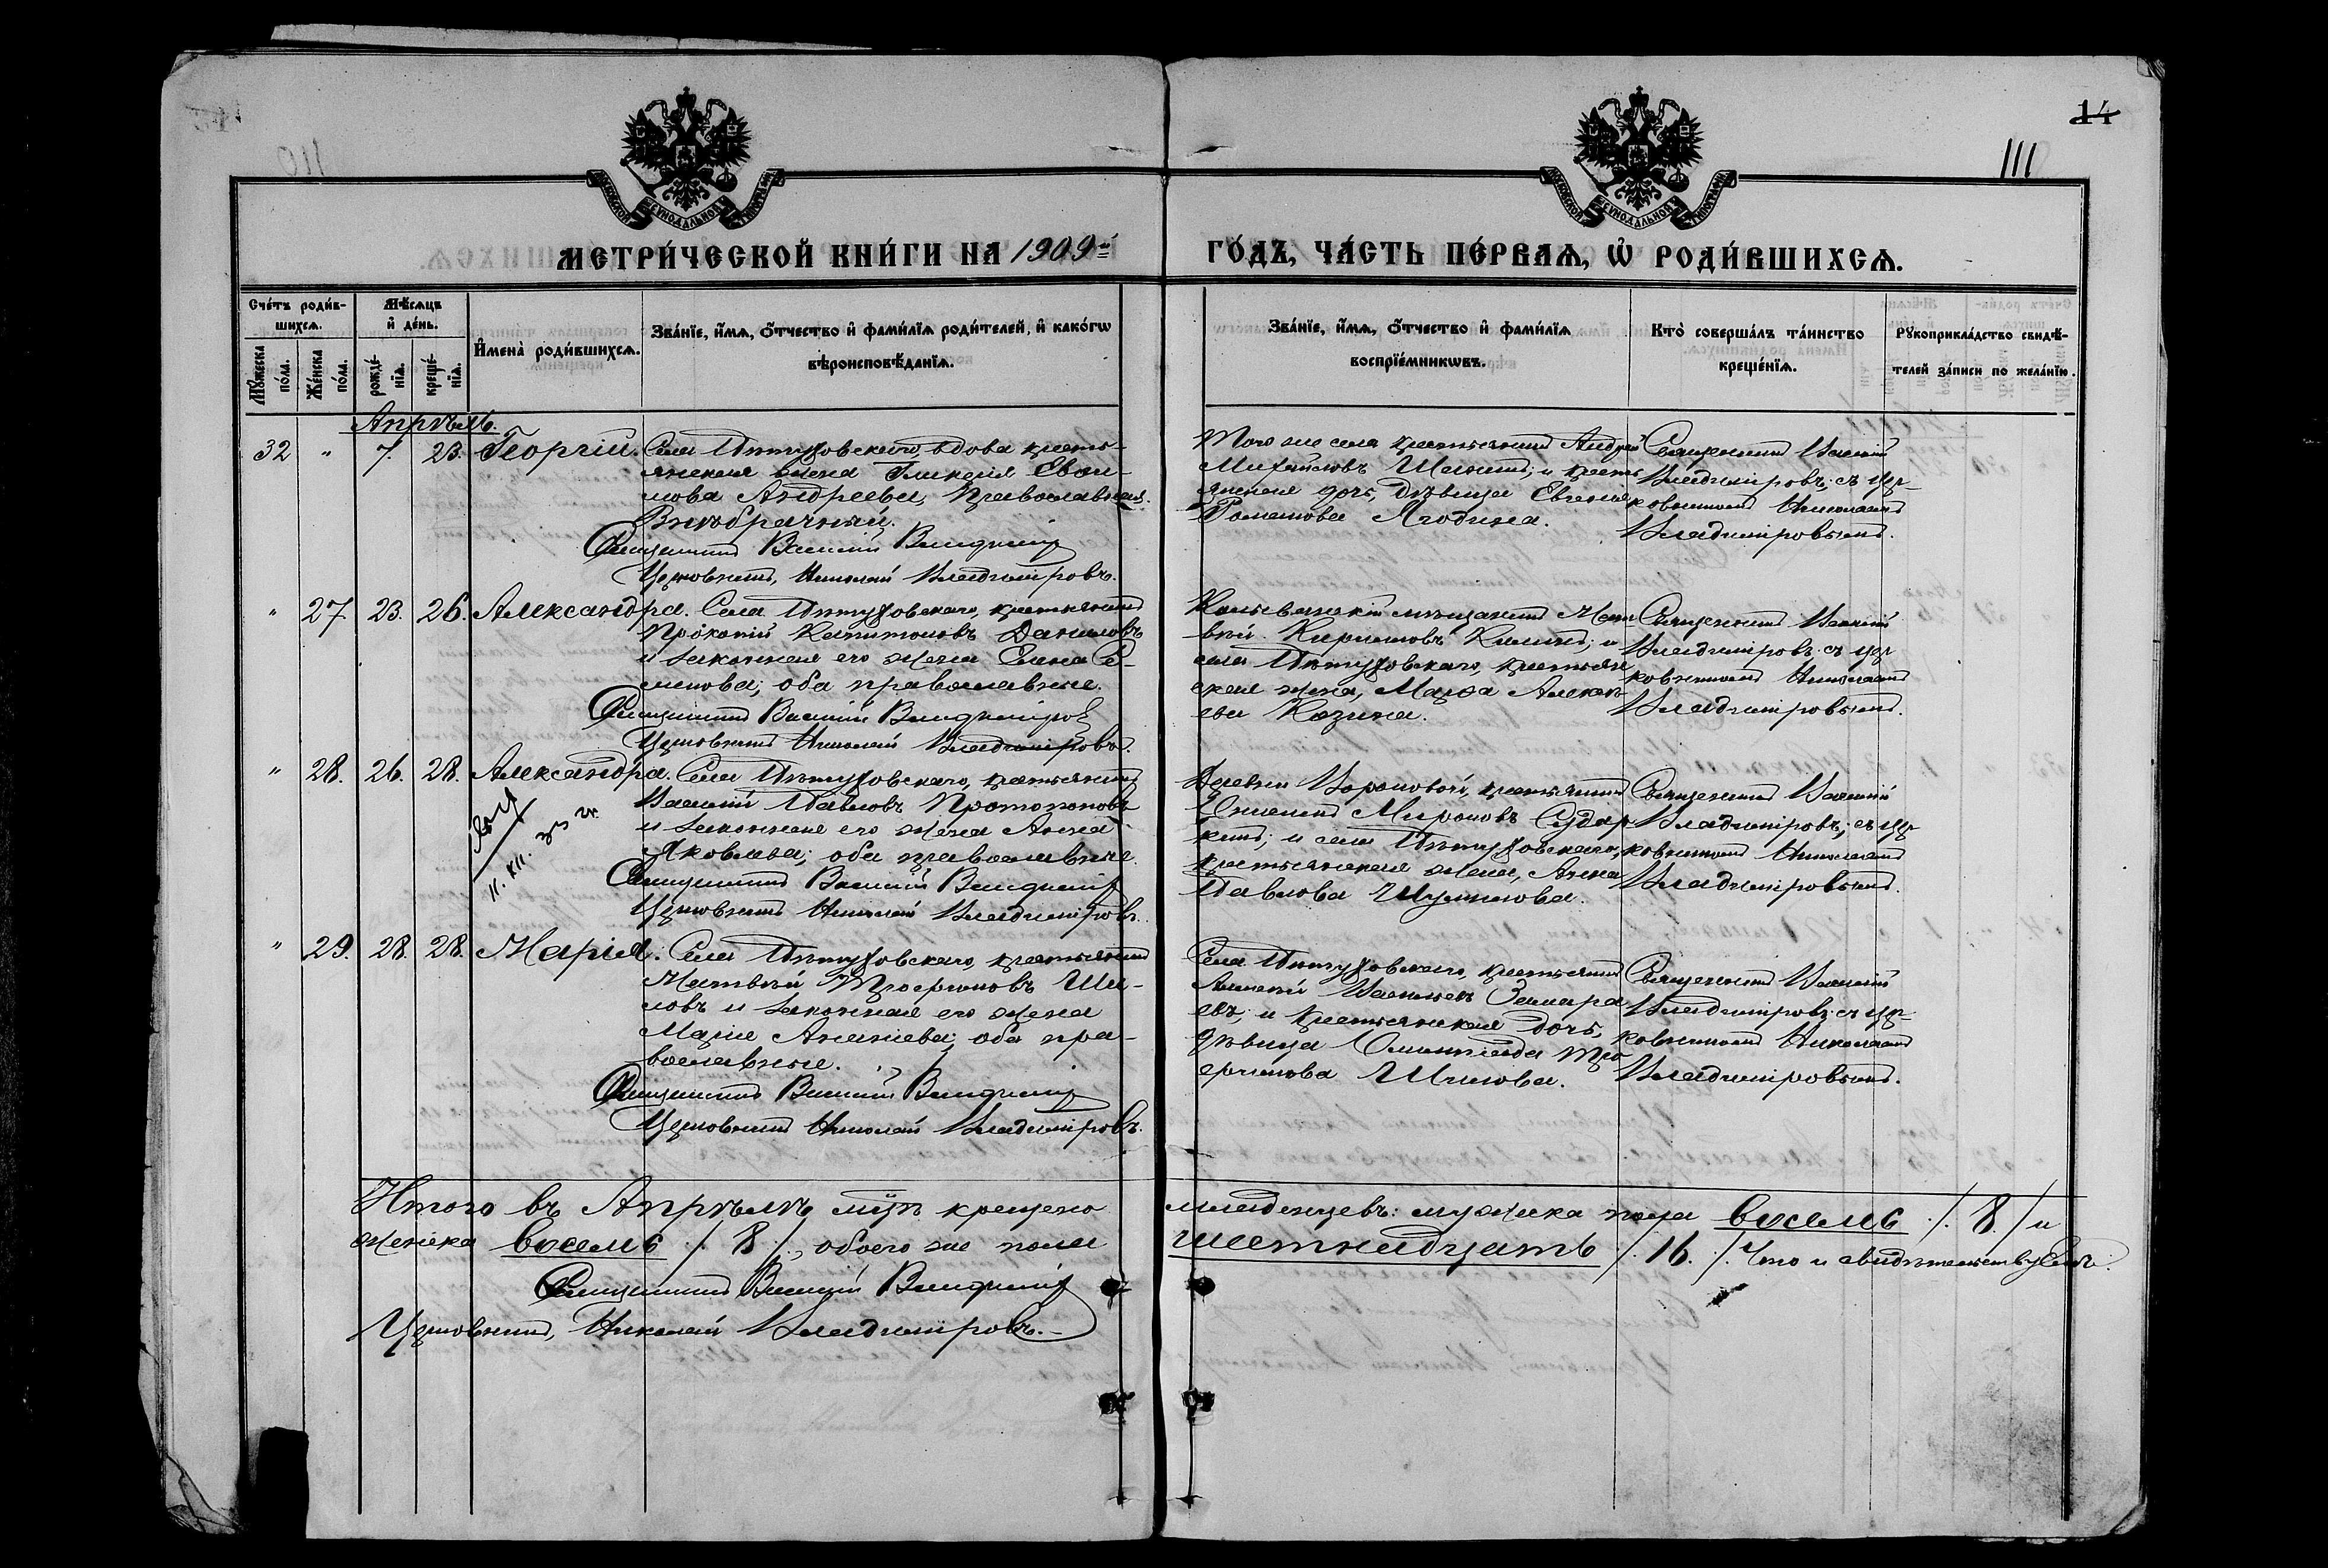 14
111
МЕТРИ́ЧЕСКОЙ КНИ́ГИ НА 1909й
ГО́ДЪ, ЧА́СТЬ ПЕ́РВАѦ, Ѽ РОДИ́ВШИХСѦ.
Сче́тъ роди́в-
шихсѧ.
Мѣ́сѧцъ
и҆ де́нь.
Мꙋ́жеска
по́ла.
Же́нска
по́ла.
рожде́-
нїѧ.
креще́-
нїѧ.
И҆мена̀ роди́вшихсѧ.
Зва́нїе, и҆́мѧ, ѻ҆́тчество и҆ фами́лїѧ роди́телей, и҆ како́гѡ
вѣроисповѣ́данїѧ.
Зва́нїе, и҆́мѧ, ѻ҆́тчество и҆ фами́лїѧ
воспрїе́мникѡвъ.
Кто̀ соверша́лъ та́инство
креще́нїѧ.
Рꙋкоприкла́дство свидѣ́-
телей за́писи по жела́нїю.
Апрѣль.
32 " 7. 23. Георгій.
Села Пѣтуховскаго, вдова кресть-
янская жена Гликерія Евѳи-
мова Андреева, православная.
Внѣбрачный.
Священникъ Василій Владиміровъ
Церковникъ, Николай Владиміровъ.
Того же села крестьянинъ Андрей
Михайловъ и кресть
янская дочь, дѣвица Евгенія
Романова Ягодина.
Священникъ Василій
Владиміровъ, съ цер-
ковникомъ Николаемъ
Владиміровымъ.
" 27. 23. 26. Александра.
Села Пѣтуховскаго, крестьянинъ
Прокопій Капитоновъ Даниловъ
и законная его жена Елена Се-
менова; оба православные.
Священникъ Василій Владиміровъ
Церковникъ Николай Владиміровъ.
Колыванскій мѣщанинъ Мат
вѣй Кириловъ и
села Пѣтуховскаго, крестьян
ская жена, Марѳа Алексѣ
ева Козина.
Священникъ Василій
Владиміровъ съ цер
ковникомъ Николаемъ
Владиміровымъ.
" 28. 26. 28. Александра.
Села Пѣтуховскаго, крестьянинъ
Василій Павловъ Протопоповъ
и законная его жена Анна
Яковлева; оба православные.
Священникъ Василій Владиміровъ
Церковникъ Николай Владиміровъ.
Деревни Вороновой, крестьянинъ
Мироновъ Судар
кинъ; и села Пѣтуховскаго,
крестьянская жена, Анна
Павлова Шумилова.
Священникъ Василій
Владиміровъ, съ цер
ковникомъ Николаемъ
Владиміровымъ.
" 29. 28. 28. Марія.
Села Пѣтуховскаго, крестьянинъ
Матвѣй Трофимовъ Ши-
ловъ и законная его жена
Марія Ананіева; оба пра-
вославные.
Священникъ Василій Владиміровъ
Церковникъ Николай Владиміровъ.
Села Пѣтуховскаго, крестьянинъ
Алексѣй Васильевъ Замара
евъ; и крестьянская дочь,
дѣвица Олимпіада Тро
фимова Шилова.
Священникъ Василій
Владиміровъ съ цер-
ковникомъ Николаемъ
Владиміровымъ.
Итого въ Апрѣлѣ мцѣ крещено младенцевъ: мужска пола восемь /. 8 ./ и
женска восемь /. 8 /., обоего же пола шестнадцать /. 16. /. Что и свидѣтельствуемъ.
Священникъ Василій Владиміровъ
Церковникъ, Николай Владиміровъ.